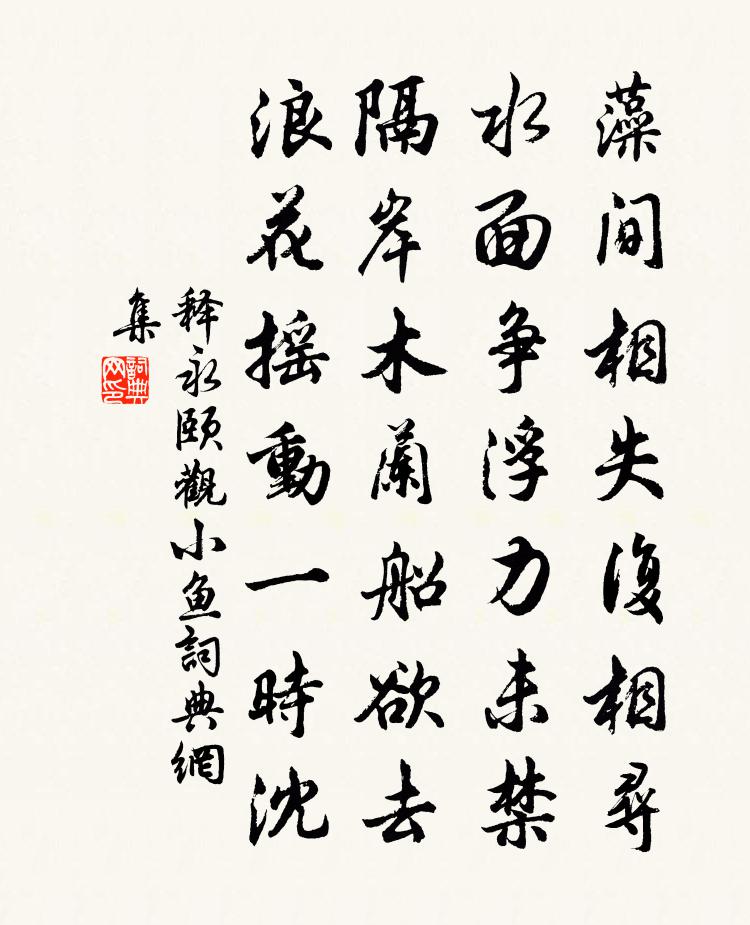 藻间相失復相尋
水面争浮力未禁
隔岸木蘭船欲去
浪花摇動一時沈
释永颐觀小鱼詞典網
集
詞典网印